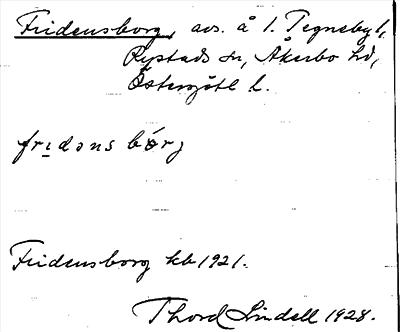 Fridensborg, avs. å 1. Tegneby 1,
Rystads sn, Åkerbo hd,
Östergötl l.
fridəns bórj
Fridensborg kb 1921.
Thord Lindell 1928.